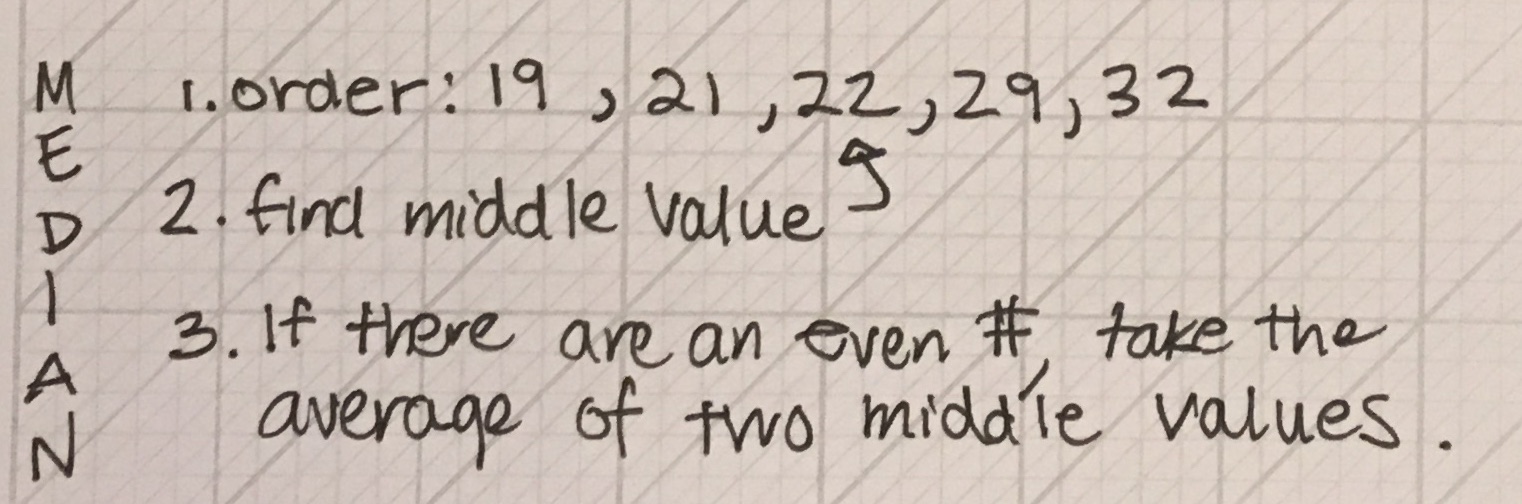 MEDIAN
1. order: 19, 21, 22, 29, 32
2. find middle value
3. If there are an even #, take the
average of two middle values.